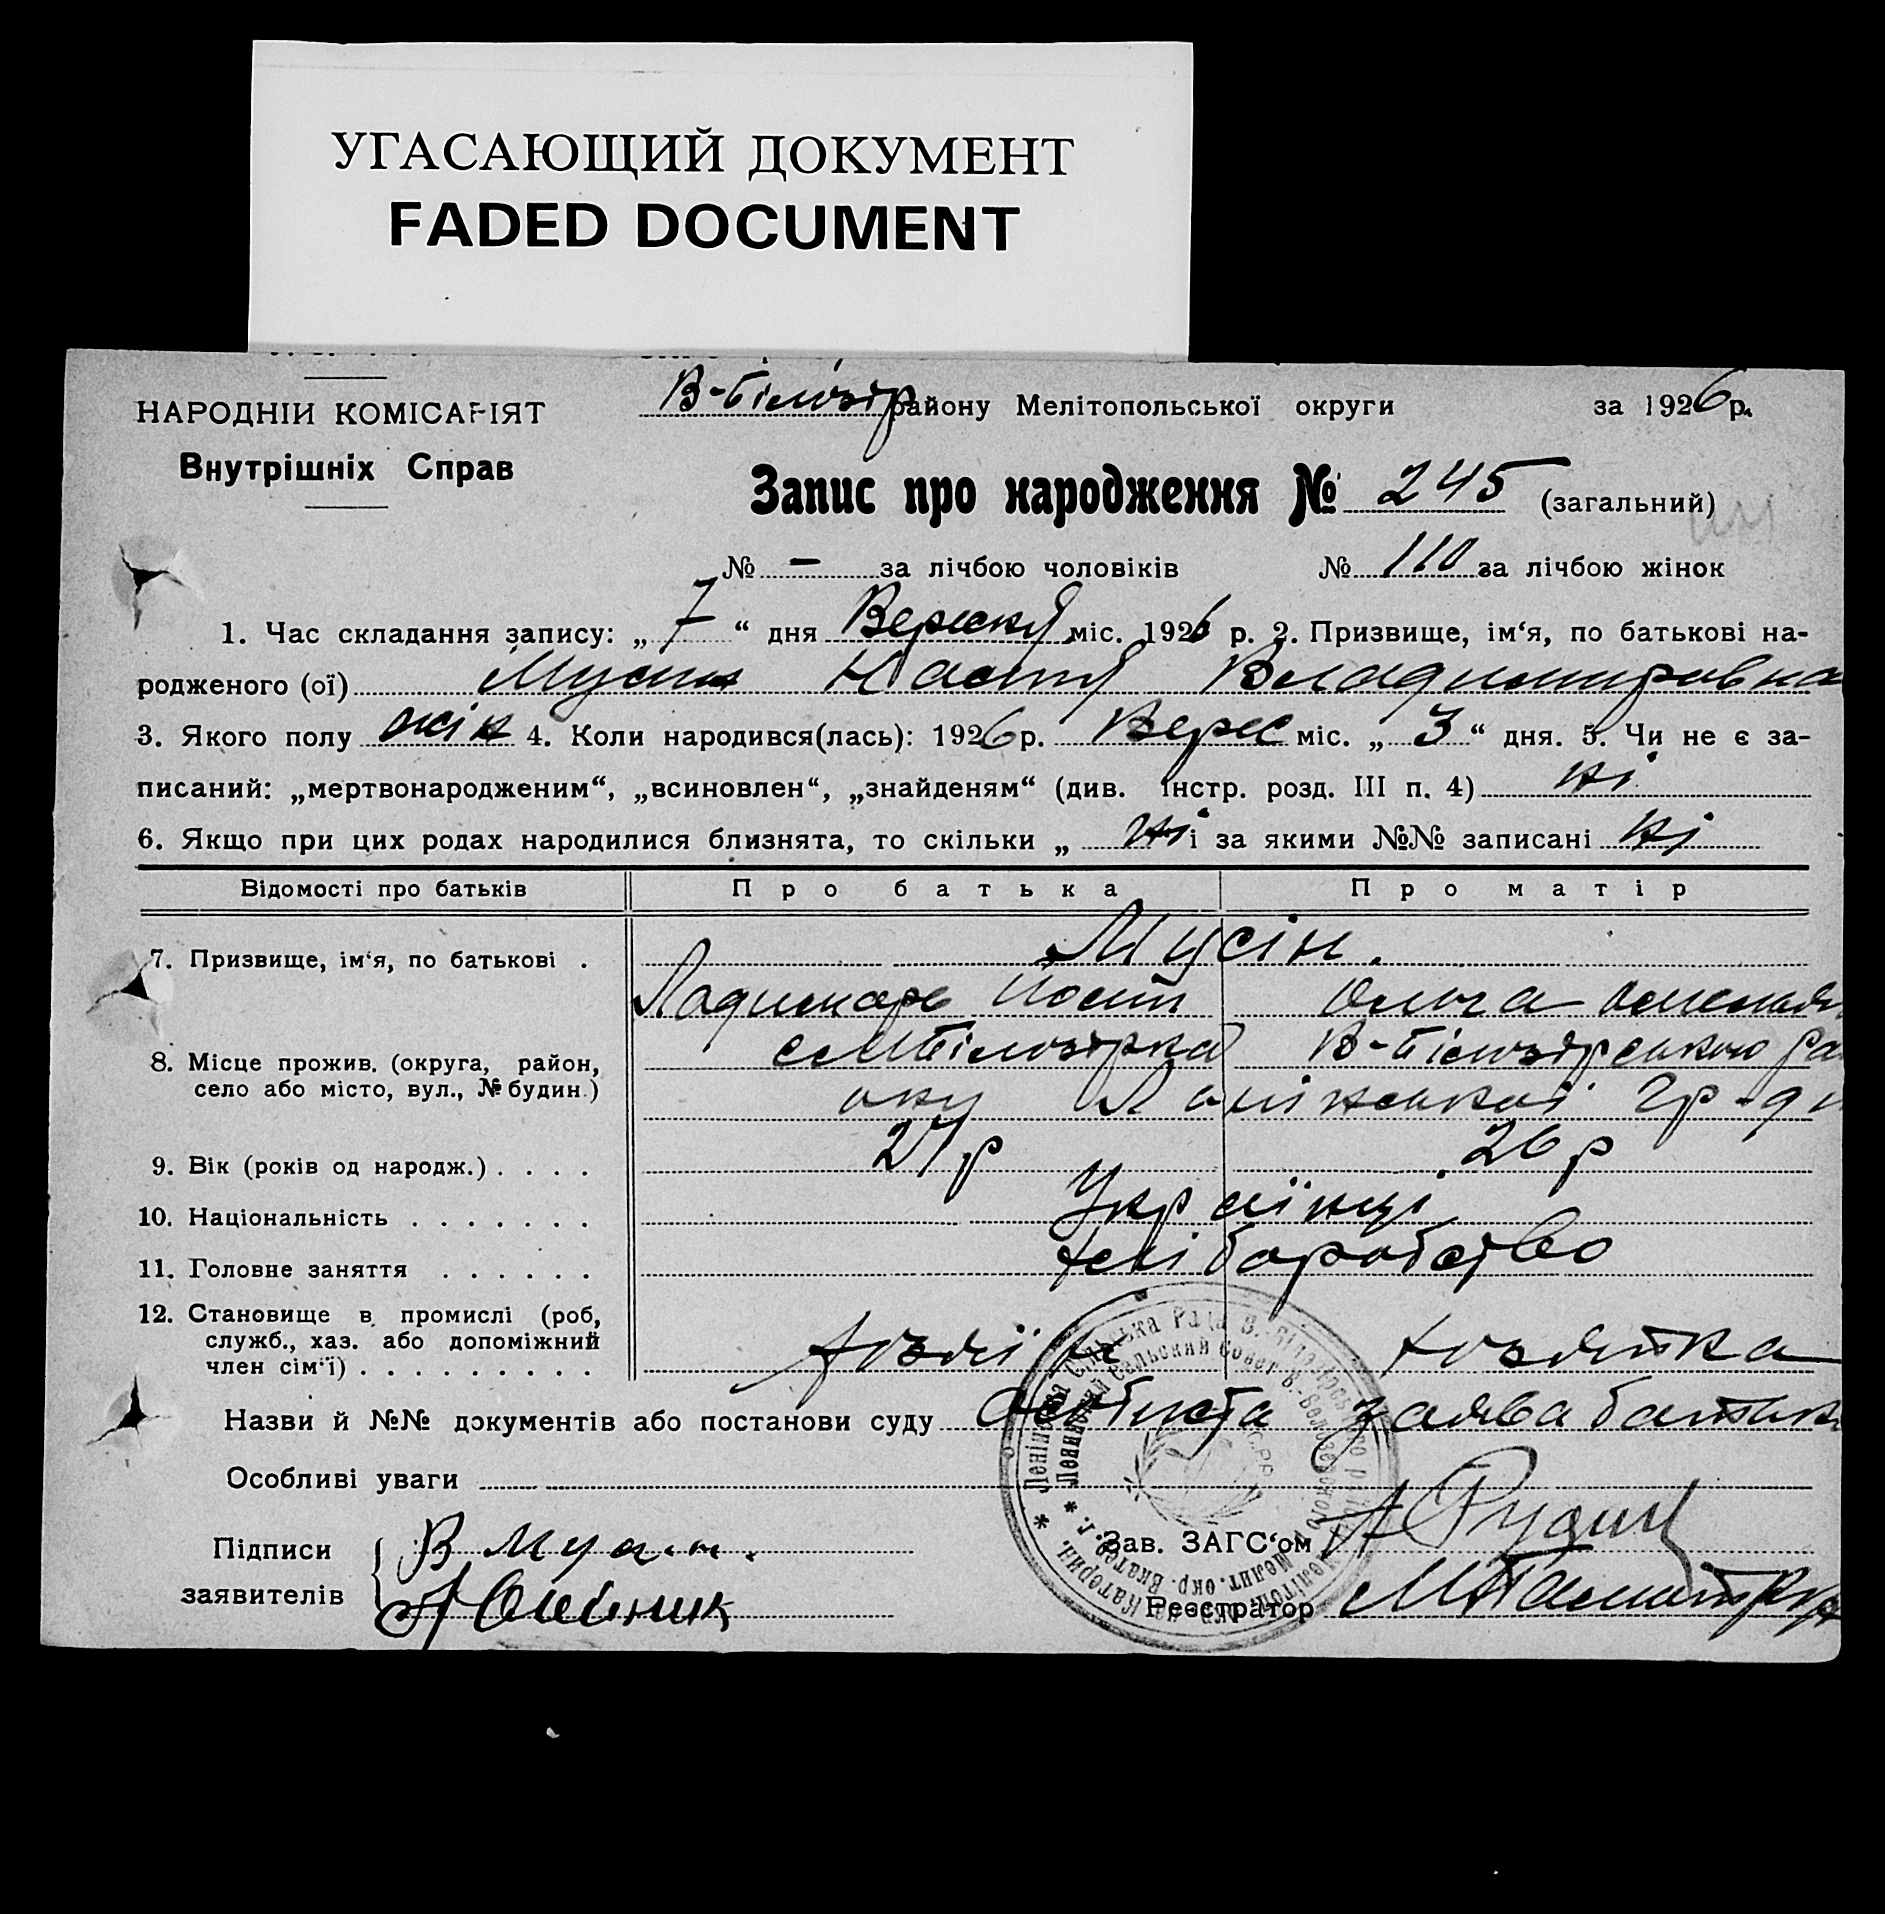 УГАСАЮЩИЙ ДОКУМЕНТ
FADED DOCUMENT
НАРОДНІЙ КОМІСАРІЯТ
Внутрішніх Справ
В-Білозір району Мелітопольської округи за 1926 р.
Запис про народження № 245 (загальний)
№ - за лічбою чоловіків № 110 за лічбою жінок
1. Час складання запису: „ 7 “ дня Вересня міс. 1926 р. 2. Призвище, ім‘я, по батькові на-
родженого (ої) Мусин Настя Владимировна
3. Якого полу жін 4. Коли народився(лась): 1926 р. Верес міс. „ 3 “ дня. 5. Чи не є за-
писаний: „мертвонародженим“, „всиновлен“, „знайденям“ (див. інстр. розд. III п. 4) ні
6. Якщо при цих родах народилися близнята, то скільки „ ні і за якими №№ записані ні
Відомості про батьків Про батька Про матір
7. Призвище, ім‘я, по батькові . Мусін.
Ольга
8. Місце прожив. (округа, район,
село або місто, вул., № будин.)
В-Білозірського
9. Вік (років од народж.) . . . . 27 р 26 р
10. Національність . . . . . . . Українці
11. Головне заняття . . . . . . Хліборобство
12. Становище в промислі (роб,
служб., хаз. або допоміжний
член сім‘ї) . . . . . . . . . . Хозяїн Хозяйка
Назви й №№ документів або постанови суду Особиста заява батька
Особливі уваги
Підписи В Мусин.
заявителів Олійник
Зав. ЗАГС‘ом
Реєстратор